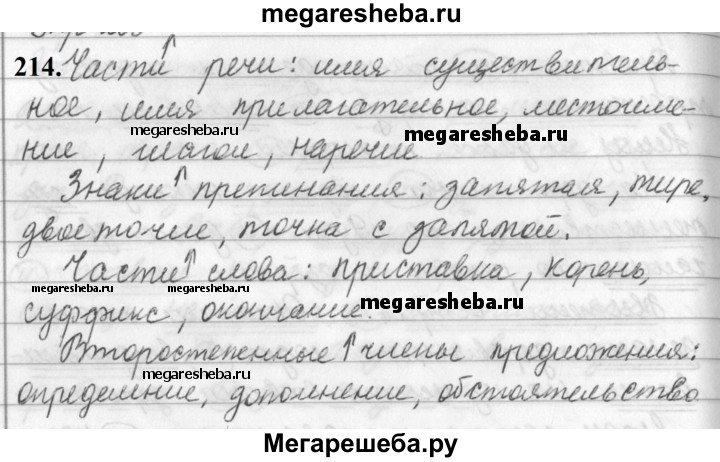 megaresheba.ru
214. Части↑ речи: имя существитель-
ное, имя прилагательное, местоиме-
megaresheba.ru megaresheba.ru
ние, глагол, наречие.
megaresheba.ru
Знаки↑ препинания: запятая, тире,
двоеточие, точка с запятой.
Части↑ слова: приставка, корень,
megaresheba.ru megaresheba.ru
суффикс, окончание.
megaresheba.ru
Второстепенные↑ члены предложения:
megaresheba.ru
определение, дополнение, обстоятельство
Мегарешеба.ру